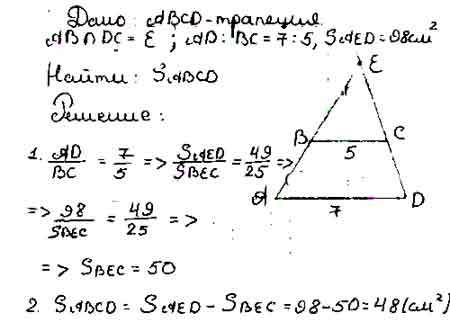 Дано: ABCD-трапеция
AB∩DC = E ; AD : BC = 7 : 5, SAED = 98см²
Найти: SABCD
Решение:
E
B C
5
A D
7
1. AD/BC = 7/5 => SAED/SBEC = 49/25 =>
=> 98/SBEC = 49/25 =>
=> SBEC = 50
2. SABCD = SAED - SBEC = 98 - 50 = 48 (см²)